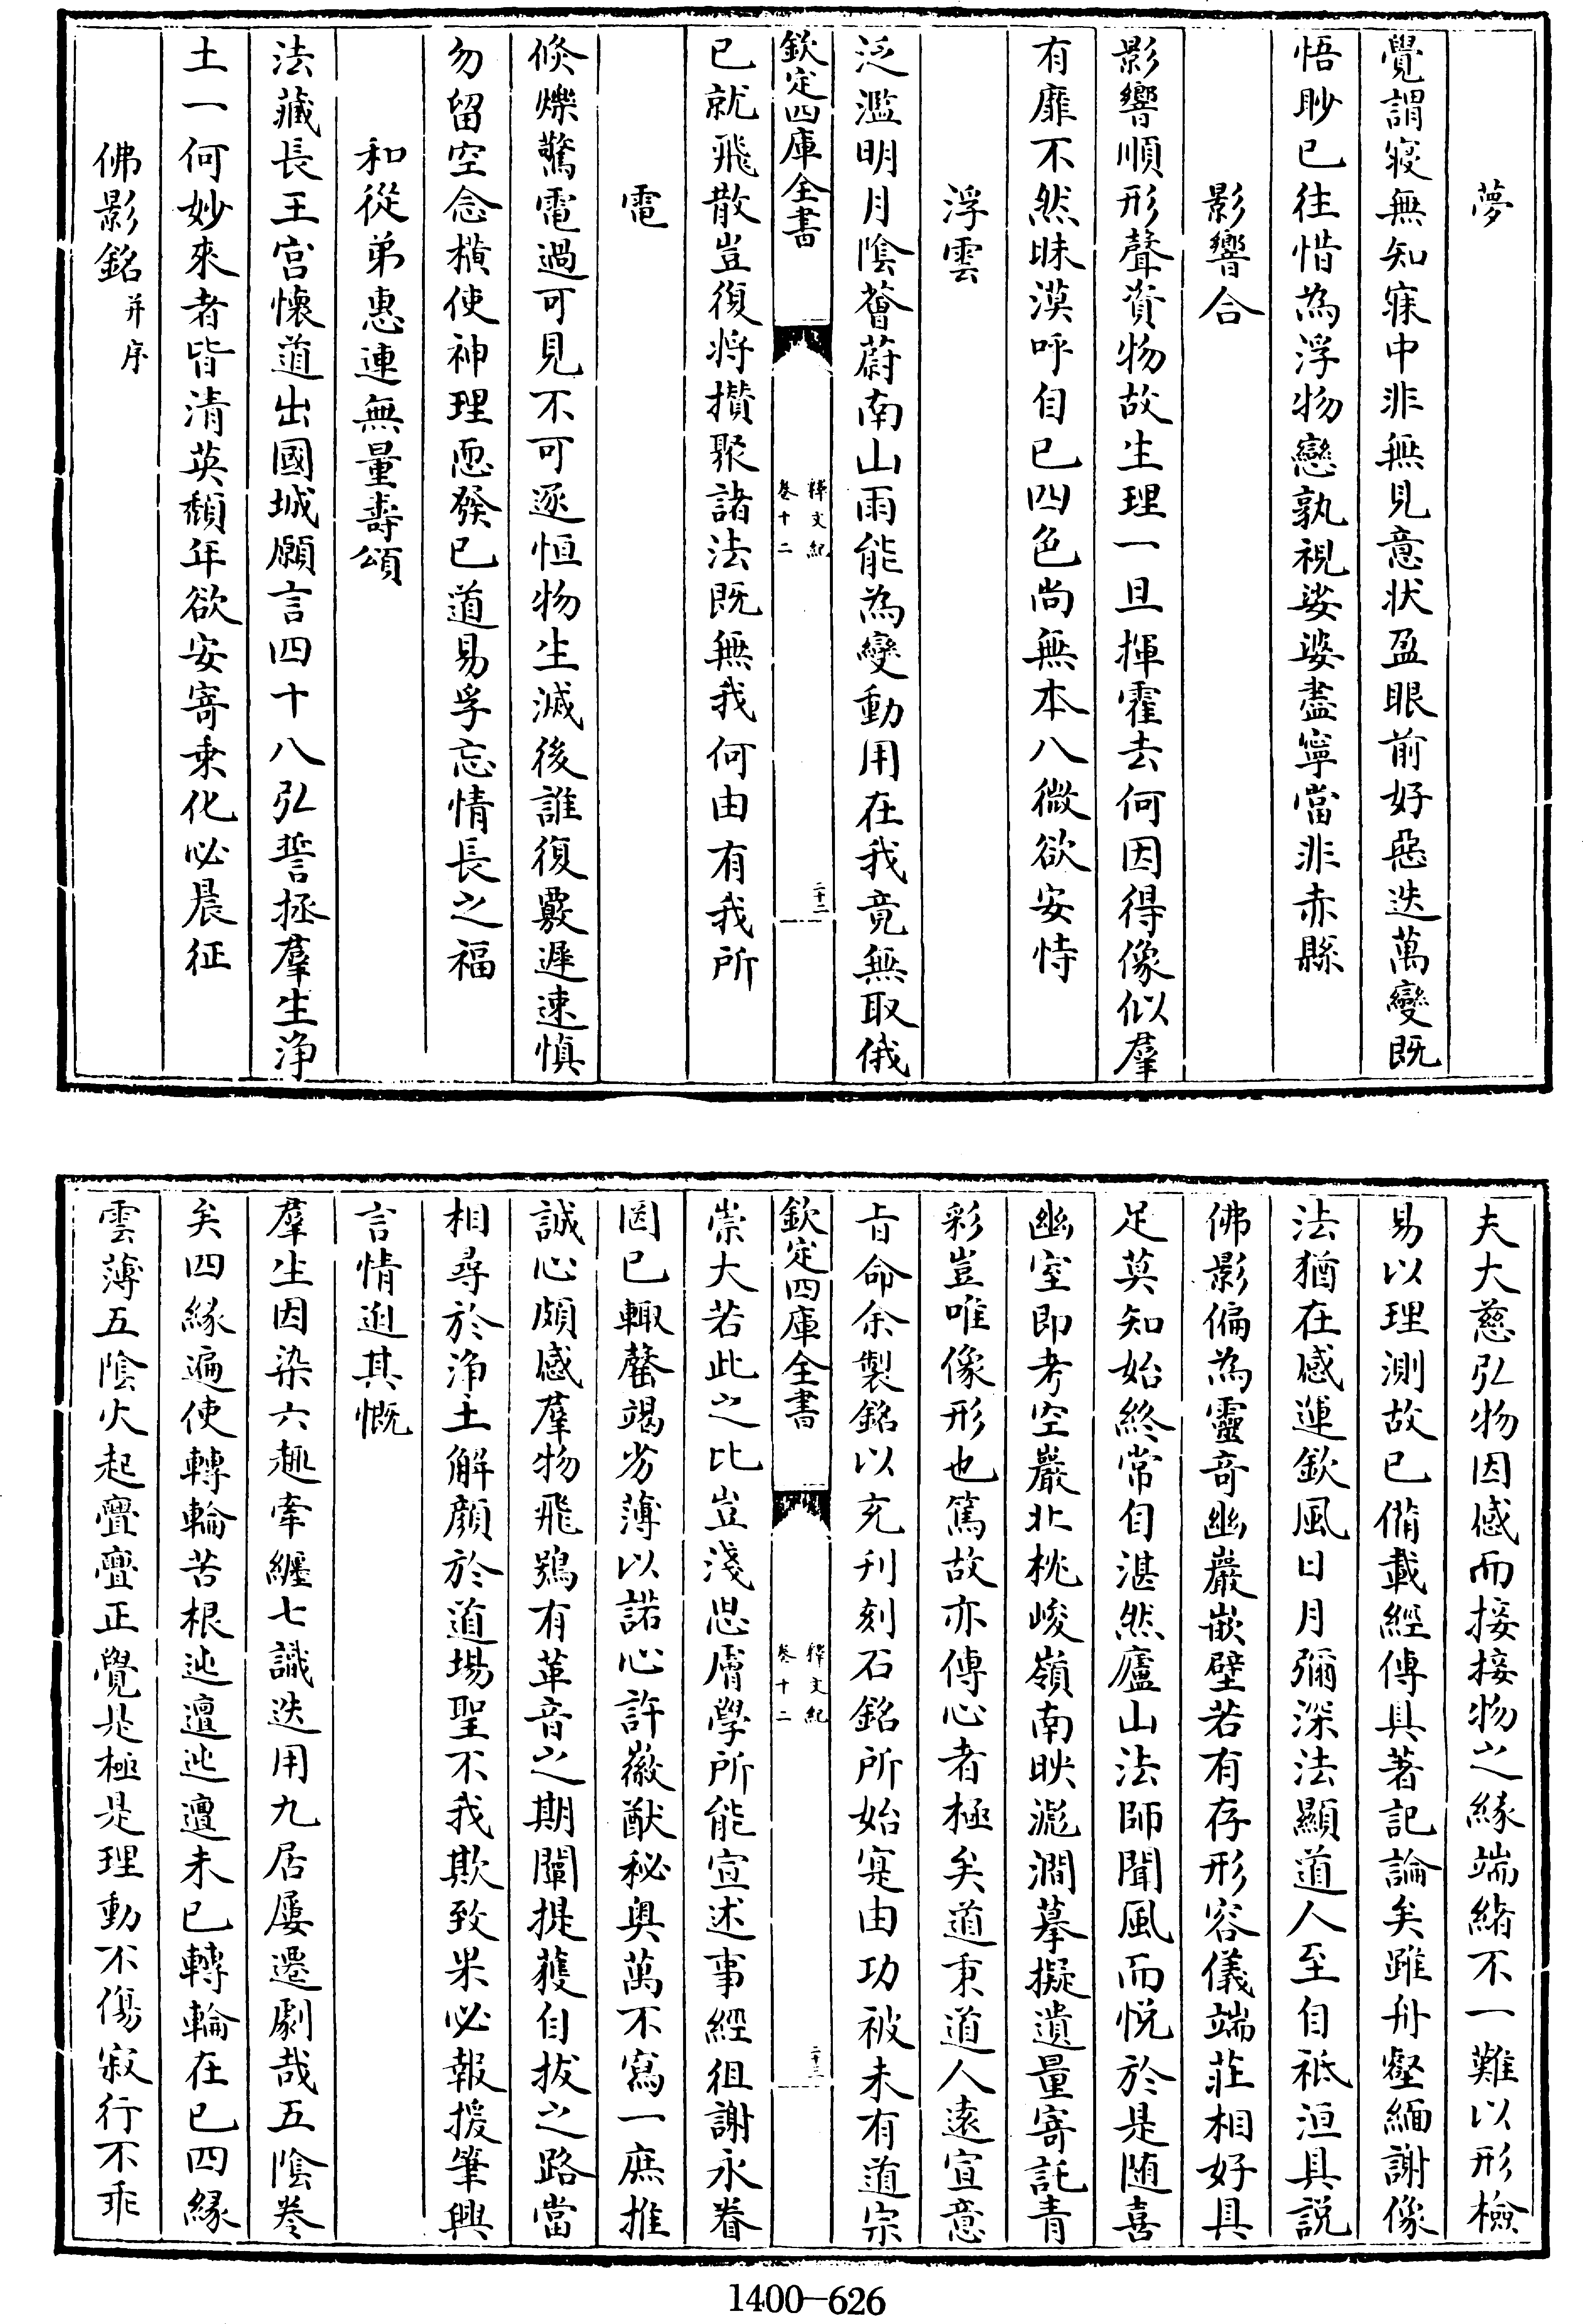 夢
覺謂寢無知寐中非無見意狀盈眼前好惡迭萬變既
悟眇已往惜為浮物戀孰視娑婆盡寧當非赤縣
影響合
影響順形聲資物故生理一旦揮霍去何因得像似羣
有靡不然昧漠呼自已四色尚無本八微欲安恃
浮雲
泛濫明月陰薈蔚南山雨能為變動用在我竟無取俄
欽定四庫全書
釋文紀
卷十二
二十二
已就飛散豈復將攅聚諸法既無我何由有我所
電
倏爍驚電過可見不可逐恒物生滅後誰復覈遲速慎
勿留空念横使神理恧發已道易孚忘情長之福
和從弟惠連無量壽頌
法藏長王宫懷道出國城願言四十八弘誓拯羣生浄
土一何妙來者皆清英頽年欲安寄乗化必晨征
佛影銘并序
夫大慈弘物因感而接接物之緣端緒不一難以形檢
易以理測故已備載經傳具著記論矣雖舟壑緬謝像
法猶在感運欽風日月彌深法顯道人至自祗洹具説
佛影偏為靈奇幽巖嵌壁若有存形容儀端莊相好具
足莫知始終常自湛然廬山法師聞風而悦於是随喜
幽室即考空巖北枕峻嶺南映滮澗摹擬遺量寄託青
彩豈唯像形也篤故亦傳心者極矣道秉道人遠宣意
旨命余製銘以充刋刻石銘所始寔由功被未有道宗
欽定四庫全書
釋文紀
卷十二
二十三
崇大若此之比豈淺思膚學所能宣述事經徂謝永眷
罔已輙罄竭劣薄以諾心許徽猷秘奥萬不寫一庶推
誠心頗感羣物飛鴞有革音之期闡提獲自拔之路當
相尋於浄土解顔於道場聖不我欺致果必報援筆興
言情逈其慨
羣生因染六趣牽纏七識迭用九居屢遷劇哉五陰倦
矣四緣遍使轉輪苦根迍邅迍邅未已轉輪在已四緣
雲薄五陰火起亹亹正覺是極是理動不傷寂行不乖
1400—626